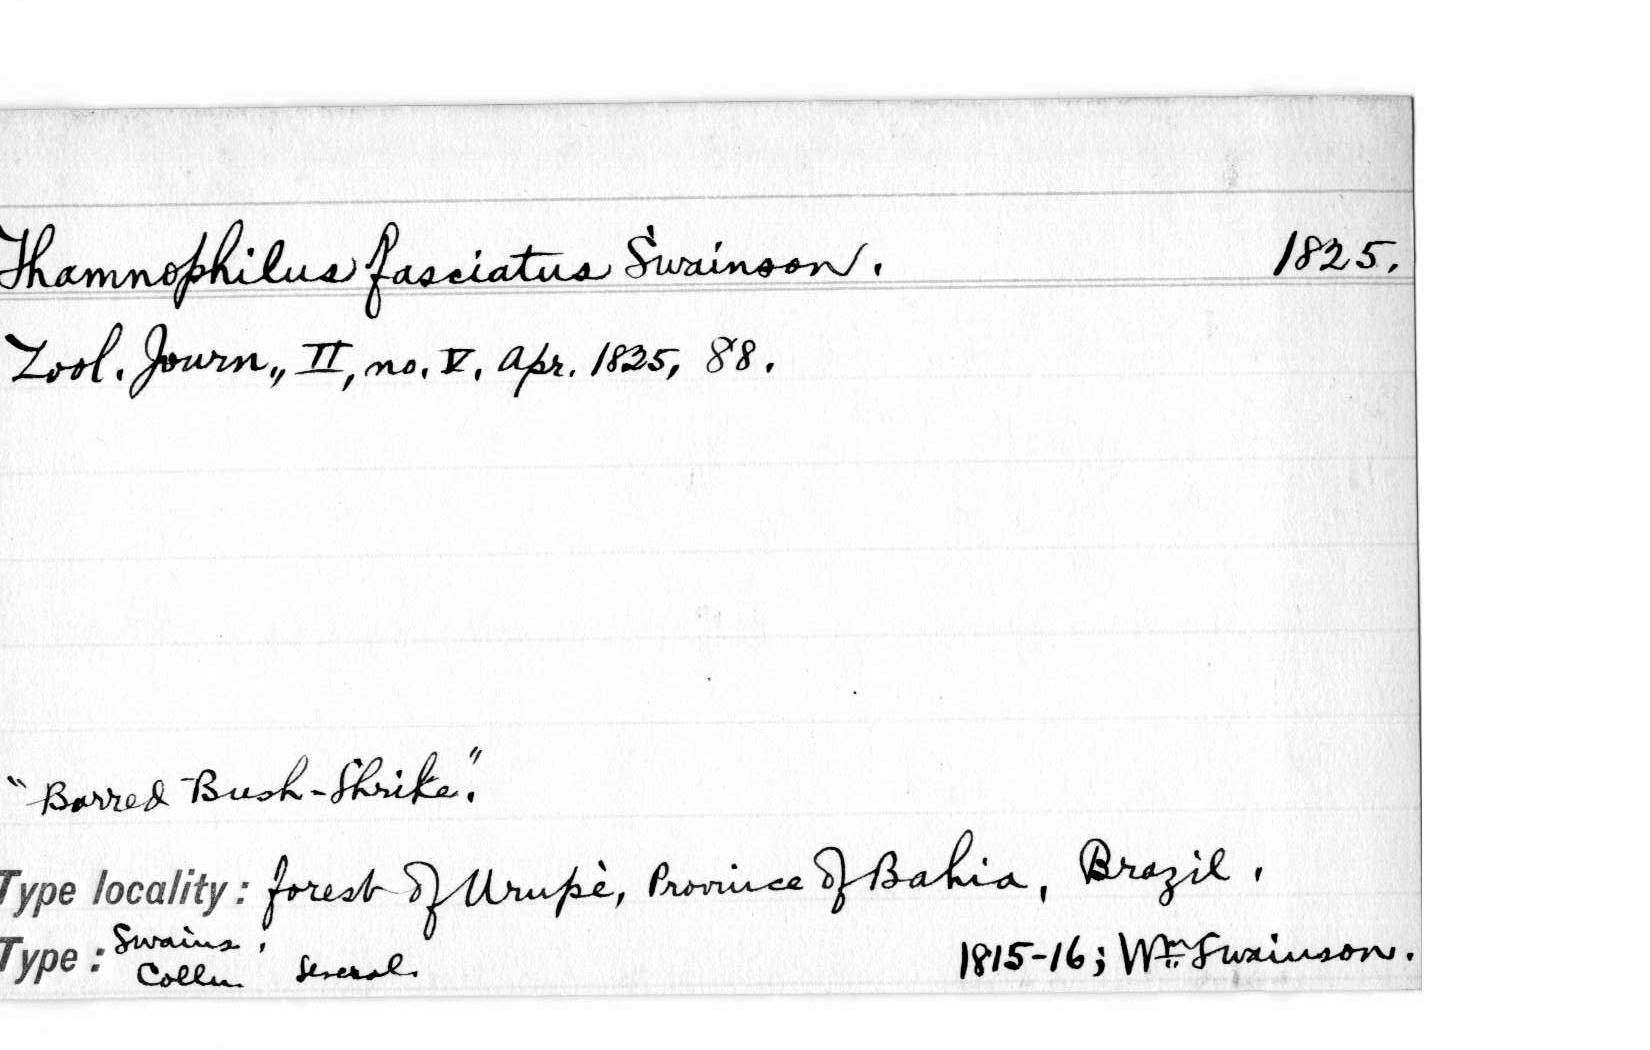 Thamnophilus fasciatus Swainson. 1825.
Zool. Journ., II, no. V. Apr. 1825, 88.
"Barred Bush-Shrike."
Type locality: forest of Urupè, Province of Bahia, Brazil.
Type: Swains. Colln. Several. 1815-16; Wm. Swainson.